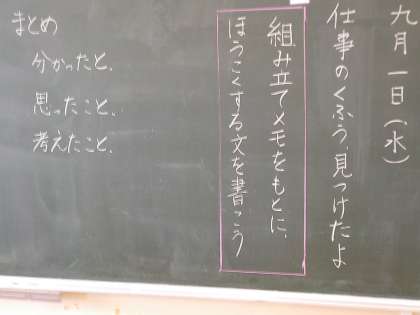 九月一日(水)
仕事のくふう、見つけたよ
組み立てメモをもとに、
ほうこくする文を書こう
まとめ
分かったこと、
思ったこと、
考えたこと、